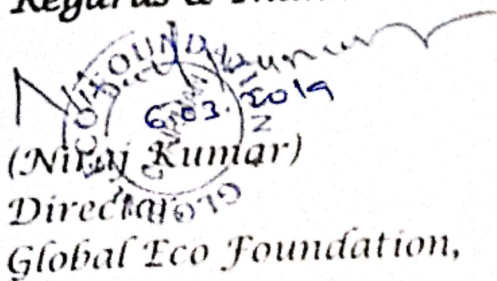 Regards &
6.03.2019
(Niraj Kumar)
Director
Global Eco Foundation,